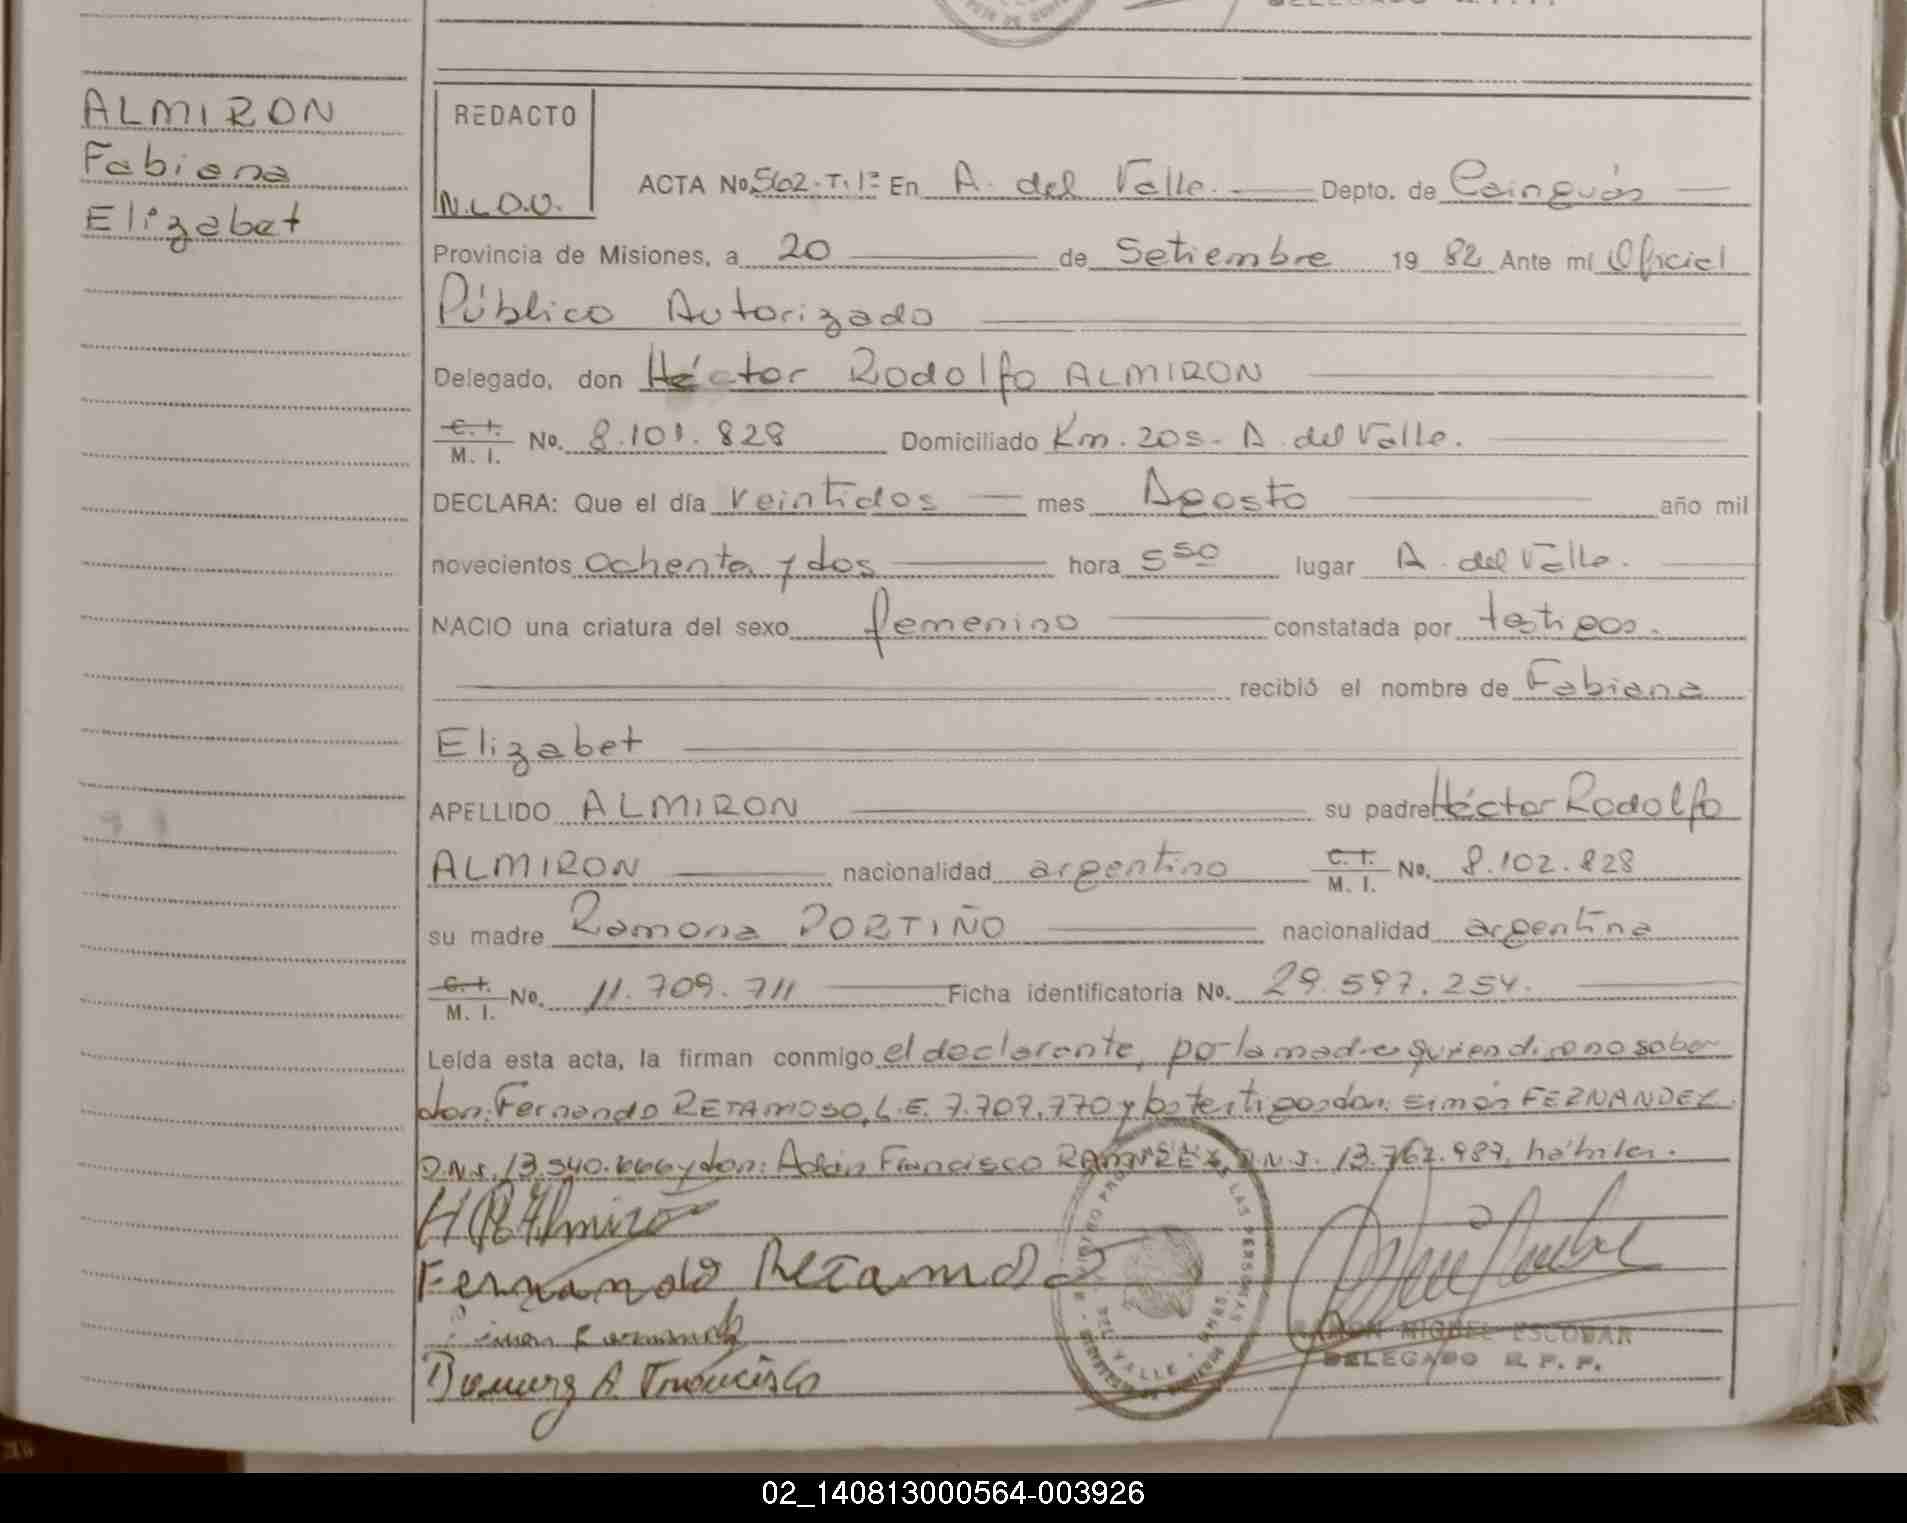 ALMIRON
Fabiana
Elizabet
REDACTO
N.L.O.V.
ACTA No. 562-T.1º En A. del Valle. Depto. de Cainguás
Provincia de Misiones, a 20 de Setiembre 19 82 Ante mí Oficial
Público Autorizado
Delegado, don Héctor Rodolfo ALMIRON
C. I. M. I. No. 8.101.828 Domiciliado Km. 205- A. del Valle.
DECLARA: Que el día veintidos mes Agosto año mil
novecientos ochenta y dos hora 5 50 lugar A. del Valle.
NACIO una criatura del sexo femenino constatada por testigos.
recibió el nombre de Fabiana
Elizabet
APELLIDO ALMIRON su padre Héctor Rodolfo
ALMIRON nacionalidad argentino C. I. M. I. No. 8.102.828
su madre Ramona PORTIÑO nacionalidad argentina
C. I. M. I. No. 11.709.711 Ficha identificatoria No. 29.597.254.
Leída esta acta, la firman conmigo el declarante, por la madre quien dice no saber
don: Fernando RETAMOSO, L.E. 7.709.770 y los testigos don: Simón FERNANDEZ
D.N.I. 13.540.666 y don: Adán Francisco RAMIREZ, D.N.I. 13.762.987, hábiles.
H R Almiron
Fernando Retamoso
Simon Fernandez
A Francisco
RAMON MIGUEL ESCOBAR
DELEGADO R. P. P.
02_140813000564-003926